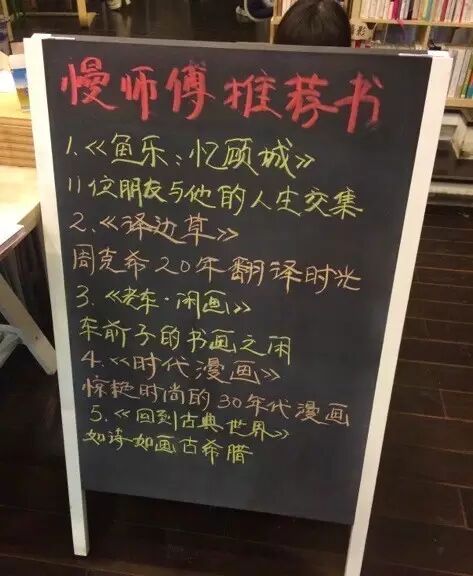 慢师傅推荐书
1.《鱼乐:忆顾城》
11位朋友与他的人生交集
2.《译边草》
周克希20年翻译时光
3.《老车·闲画》
车前子的书画之闲
4.《时代漫画》
惊艳时尚的30年代漫画
5.《回到古典世界》
如诗如画古希腊